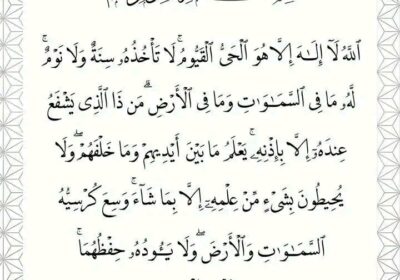 ٱللَّهُ لَآ إِلَـٰهَ إِلَّا هُوَ ٱلْحَىُّ ٱلْقَيُّومُ ۚ لَا تَأْخُذُهُۥ سِنَةٌ وَلَا نَوْمٌ ۚ
لَّهُۥ مَا فِى ٱلسَّمَـٰوَٰتِ وَمَا فِى ٱلْأَرْضِ ۗ مَن ذَا ٱلَّذِى يَشْفَعُ
عِندَهُۥٓ إِلَّا بِإِذْنِهِۦ ۚ يَعْلَمُ مَا بَيْنَ أَيْدِيهِمْ وَمَا خَلْفَهُمْ ۖ وَلَا
يُحِيطُونَ بِشَىْءٍ مِّنْ عِلْمِهِۦٓ إِلَّا بِمَا شَآءَ ۚ وَسِعَ كُرْسِيُّهُ
ٱلسَّمَـٰوَٰتِ وَٱلْأَرْضَ ۖ وَلَا يَـُٔودُهُۥ حِفْظُهُمَا ۚ